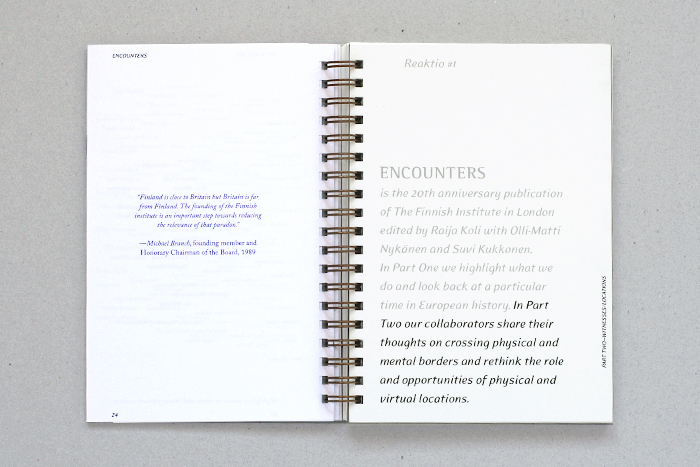 ENCOUNTERS
"Finland is close to Britain but Britain is far
from Finland. The founding of the Finnish
institute is an important step towards reducing
the relevance of that paradox."
—Michael Branch, founding member and
Honorary Chairman of the Board, 1989
24
Reaktio #1
ENCOUNTERS
is the 20th anniversary publication
of The Finnish Institute in London
edited by Raija Koli with Olli-Matti
Nykänen and Suvi Kukkonen.
In Part One we highlight what we
do and look back at a particular
time in European history. In Part
Two our collaborators share their
thoughts on crossing physical and
mental borders and rethink the role
and opportunities of physical and
virtual locations.
PART TWO–WITNESSES/LOCATIONS